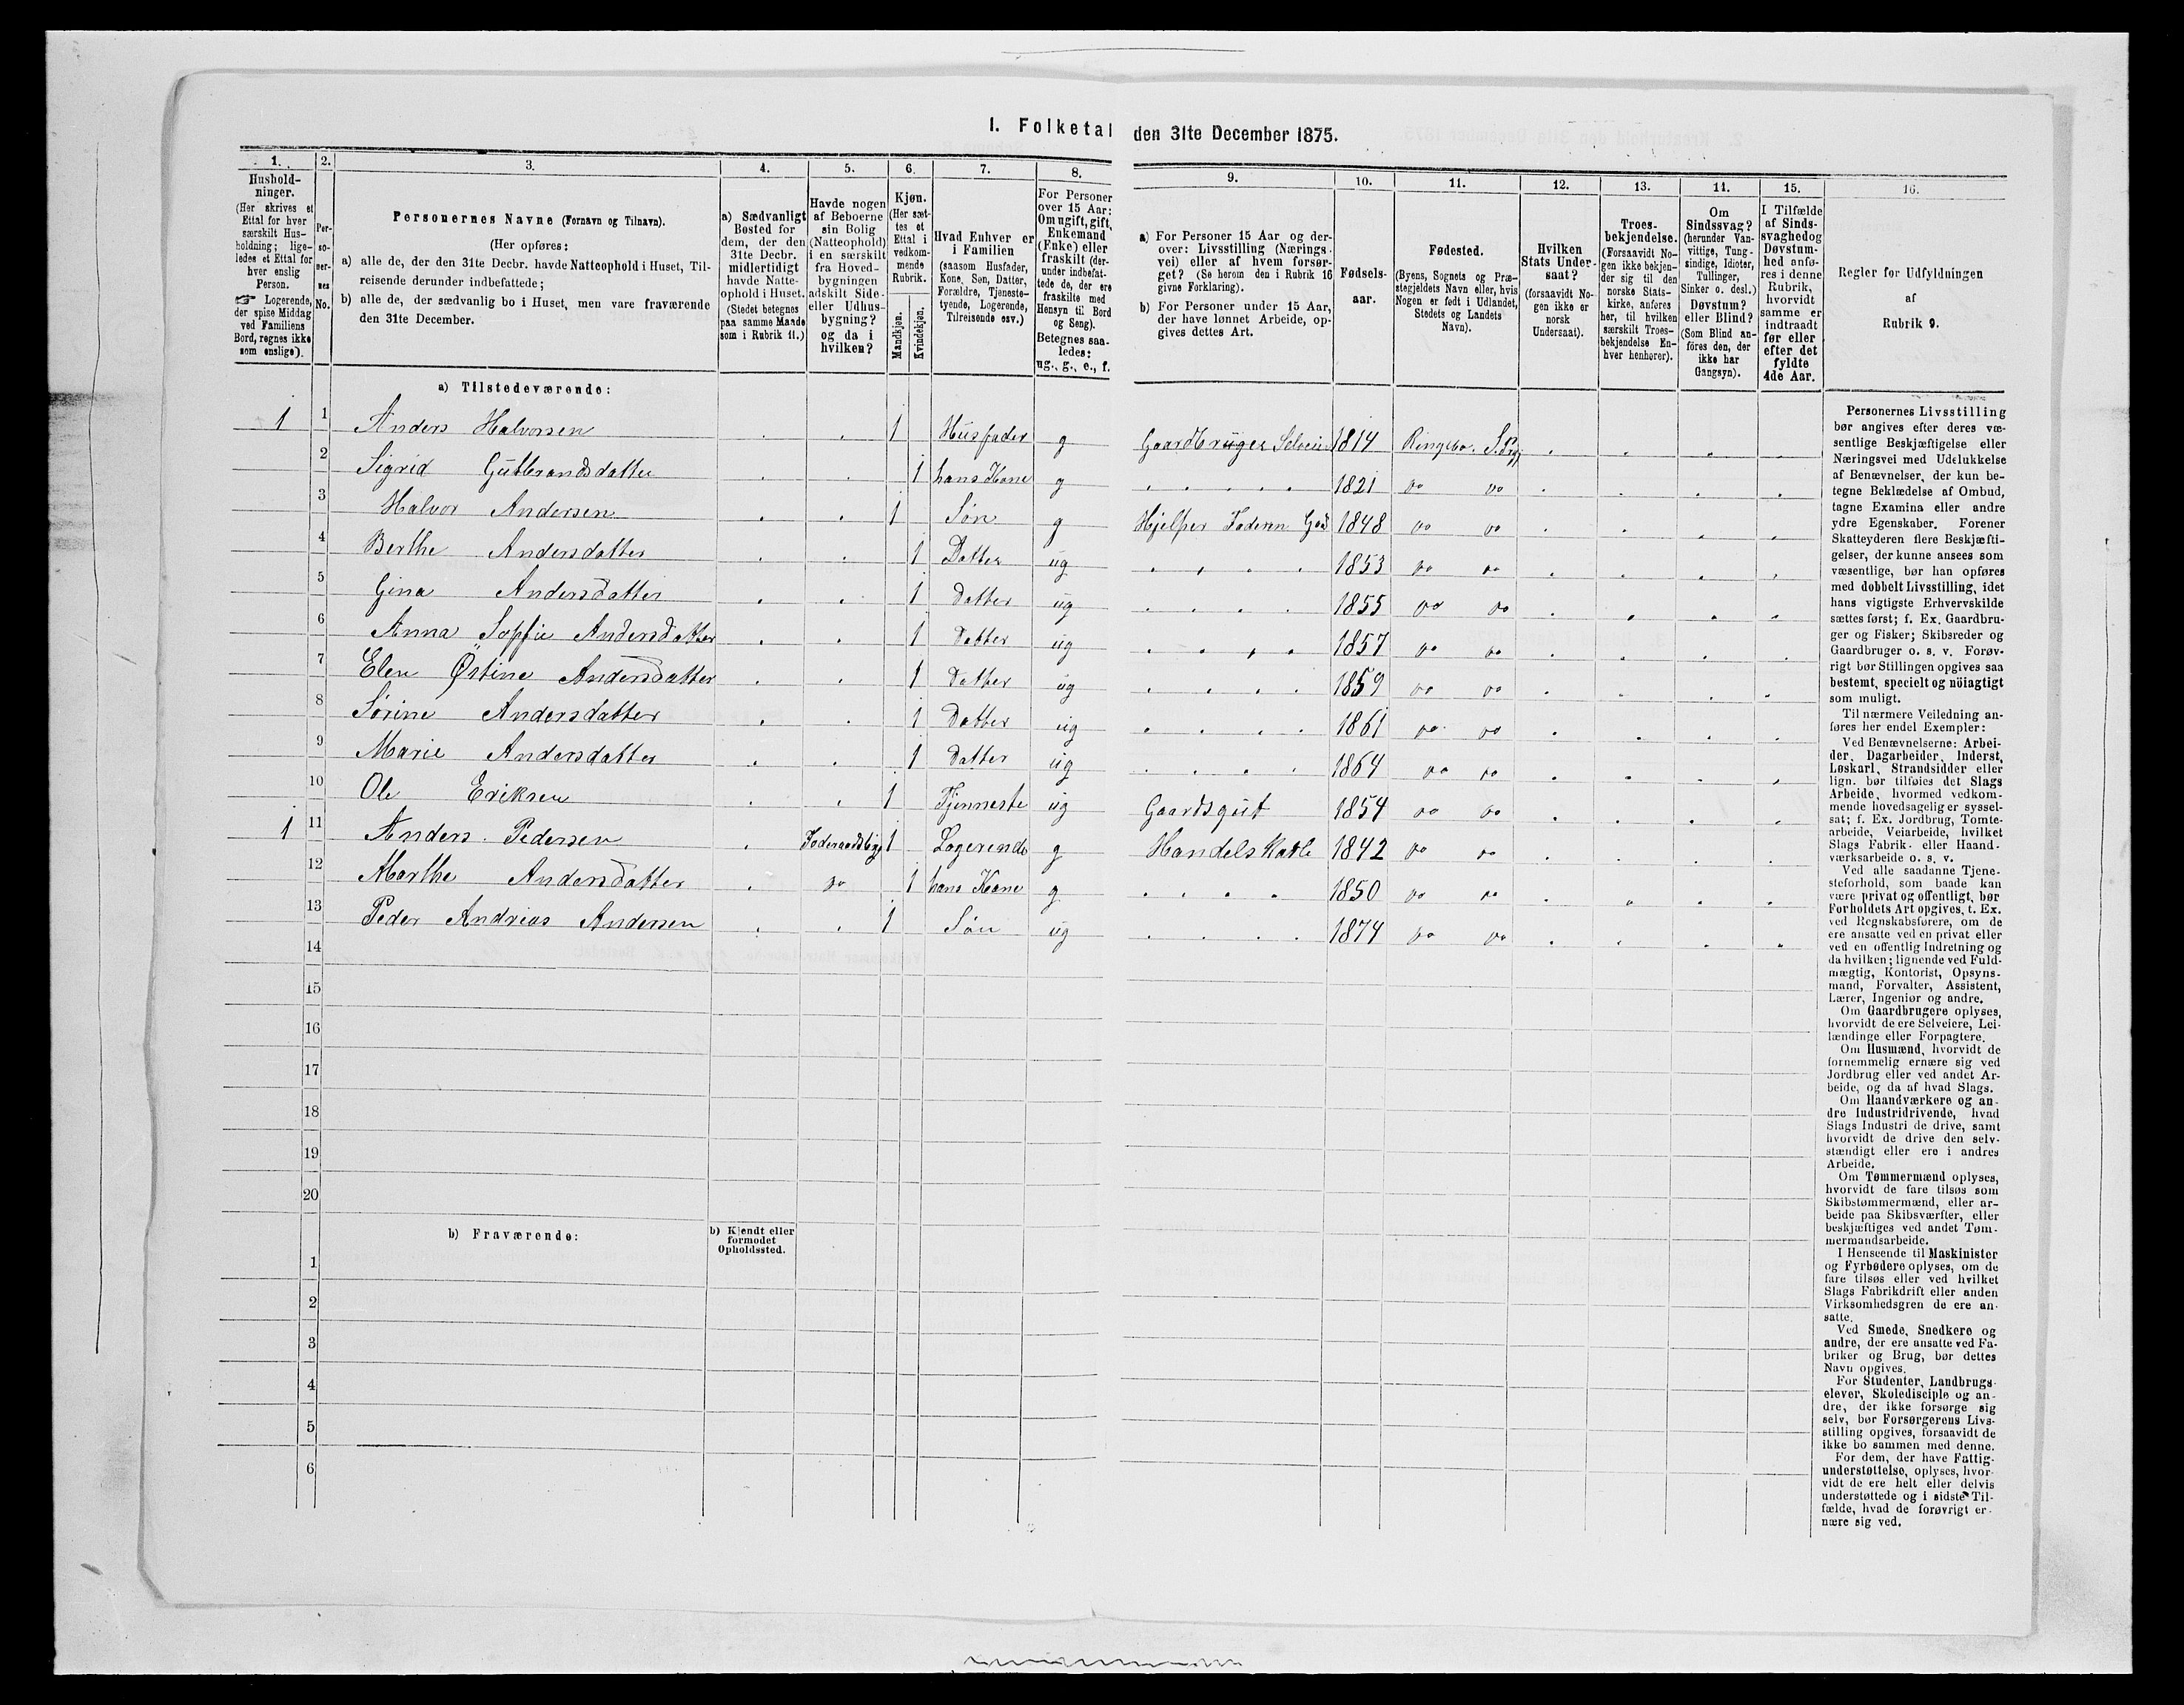 I. Folketal den 31te December 1875.
1. 2. 3. 4. 5. 6. 7. 8. 9. 10. 11. 12. 13. 14. 15. 16.
Hushold-
ninger.
(Her skrives et
Ettal for hver
særskilt Hus-
holdning; lige-
ledes et Ettal for
hver enslig
Person.
☞ Logerende,
der spise Middag
ved Familiens
Bord, regnes ikke
som enslige).
Per-
so-
ner-
nes
No.
Personernes Navne (Fornavn og Tilnavn).
(Her opføres:
a) alle de, der den 31te Decbr. havde Natteophold i Huset, Til-
reisende derunder indbefattede;
b) alle de, der sædvanlig bo i Huset, men vare fraværende
den 31te December.
a) Sædvanligt
Bosted for
dem, der den
31te Decbr.
midlertidigt
havde Natte-
ophold i Huset.
(Stedet betegnes
paa samme Maade
som i Rubrik 11.)
Havde nogen
af Beboerne
sin Bolig
(Natteophold)
i en særskilt
fra Hoved-
bygningen
adskilt Side-
eller Udhus-
bygning?
og da i
hvilken?
Kjøn.
(Her sæt-
tes et
Ettal i
vedkom-
mende
Rubrik.
Mandkjøn.
Kvindekjøn.
Hvad Enhver er
i Familien
(saasom Husfader,
Kone, Søn, Datter,
Forældre, Tjeneste-
tyende, Logerende,
Tilreisende osv.)
For Personer
over 15 Aar:
Om ugift, gift,
Enkemand
(Enke) eller
fraskilt (der-
under indbefat-
tede de, der ere
fraskilte med
Hensyn til Bord
og Seng).
Betegnes saa-
ledes:
ug., g., e., f.
a) For Personer 15 Aar og der-
over: Livsstilling (Nærings-
vei) eller af hvem forsør-
get? (Se herom den i Rubrik 16
givne Forklaring).
b) For Personer under 15 Aar,
der have lønnet Arbeide, op-
gives dettes Art.
Fødsels-
aar.
Fødested.
(Byens, Sognets og Præ-
stegjeldets Navn eller, hvis
Nogen er født i Udlandet,
Stedets og Landets
Navn).
Hvilken
Stats Under-
saat?
(forsaavidt No-
gen ikke er
norsk
Undersaat).
Troes-
bekjendelse.
(Forsaavidt No-
gen ikke bekjen-
der sig til den
norske Stats-
kirke, anføres
her, til hvilken
særskilt Troes-
bekjendelse En-
hver henhører).
Om
Sindssvag?
(herunder Van-
vittige, Tung-
sindige, Idioter,
Tullinger,
Sinker o. desl.)
Døvstum?
eller Blind?
(Som Blind an-
føres den, der
ikke har
Gangsyn).
I Tilfælde
af Sinds-
svaghed og
Døvstum-
hed anfø-
res i denne
Rubrik,
hvorvidt
samme er
indtraadt
før eller
efter det
fyldte
4de Aar.
Regler for Udfyldningen
af
Rubrik 9.
a) Tilstedeværende:
1 1 Anders Halvorsen 1 Husfader g Gaardbruger Selveier 1814 Ringebo
2 Sigrid Gutbrandsdatter 1 hans Kone g 1821 do do
3 Halvor Andersen 1 Søn g Hjelper Faderen 1848 do do
4 Berthe Andersdatter 1 Datter ug 1853 do do
5 Gina Andersdatter 1 Datter ug 1855 do do
6 Anna Sopfie Andersdatter 1 Datter ug 1857 do do
7 Elen Østine Andersdatter 1 Datter ug 1859 do do
8 Sørine Andersdatter 1 Datter ug 1861 do do
9 Marie Andersdatter 1 Datter ug 1864 do do
10 Ole Eriksen 1 Tjenneste ug Gaardsgut 1854 do do
1 11 Anders Pedersen 1 Logerende g Handelskarl 1842 do do
12 Marthe Andersdatter do 1 hans Kone g 1850 do do
13 Peder Andrias Andersen 1 Søn ug 1874 do do
14
15
16
17
18
19
20
b) Fraværende:
b) Kjendt eller
formodet
Opholdssted.
1
2
3
4
5
6
Personernes Livsstilling
bør angives efter deres væ-
sentlige Beskjæftigelse eller
Næringsvei med Udelukkelse
af Benævnelser, der kun be-
tegne Beklædelse af Ombud,
tagne Examina eller andre
ydre Egenskaber. Forener
Skatteyderen flere Beskjæfti-
gelser, der kunne ansees som
væsentlige, bør han opføres
med dobbelt Livsstilling, idet
hans vigtigste Erhvervskilde
sættes først; f. Ex. Gaardbru-
ger og Fisker; Skibsreder og
Gaardbruger o. s. v. Forøv-
rigt bør Stillingen opgives saa
bestemt, specielt og nöiagtigt
som muligt.
Til nærmere Veiledning an-
føres her endel Exempler:
Ved Benævnelserne: Arbei-
der, Dagarbeider, Inderst,
Løskarl, Strandsidder eller
lign. bør tilføies det Slags
Arbeide, hvormed vedkom-
mende hovedsagelig er syssel-
sat; f. Ex. Jordbrug, Tomte-
arbeide, Veiarbeide, hvilket
Slags Fabrik- eller Haand-
værksarbeide o. s. v.
Ved alle saadanne Tjene-
steforhold, som baade kan
være privat og offentligt, bør
Forholdets Art opgives, t. Ex.
ved Regnskabsførere, om de
ere ansatte ved en privat eller
ved en offentlig Indretning og
da hvilken; lignende ved Fuld-
mægtig, Kontorist, Opsyns-
mand, Forvalter, Assistent,
Lærer, Ingeniør og andre.
Om Gaardbrugere oplyses,
hvorvidt de ere Selveiere, Lei-
lændinge eller Forpagtere.
Om Husmænd, hvorvidt de
fornemmelig ernære sig ved
Jordbrug eller ved andet Ar-
beide, og da af hvad Slags.
Om Haandværkere og an-
dre Industridrivende, hvad
Slags Industri de drive, samt
hvorvidt de drive den selv-
stændigt eller ere i andres
Arbeide.
Om Tømmermænd oplyses,
hvorvidt de fare tilsøs som
Skibstømmermænd, eller ar-
beide paa Skibsværfter, eller
beskjæftiges ved andet Tøm-
mermandsarbeide.
I Henseende til Maskinister
og Fyrbødere oplyses, om de
fare tilsøs eller ved hvilket
Slags Fabrikdrift eller anden
Virksomhedsgren de ere an-
satte.
Ved Smede, Snedkere og
andre, der ere ansatte ved Fa-
briker og Brug, bør dettes
Navn opgives.
For Studenter, Landbrugs-
elever, Skoledisciple og an-
dre, der ikke forsørge sig
selv, bør Forsørgerens Livs-
stilling opgives, forsaavidt de
ikke bo sammen med denne.
For dem, der have Fattig-
understøttelse, oplyses, hvor-
vidt de ere helt eller delvis
understøttede og i sidste Til-
fælde, hvad de forøvrigt er-
nære sig ved.